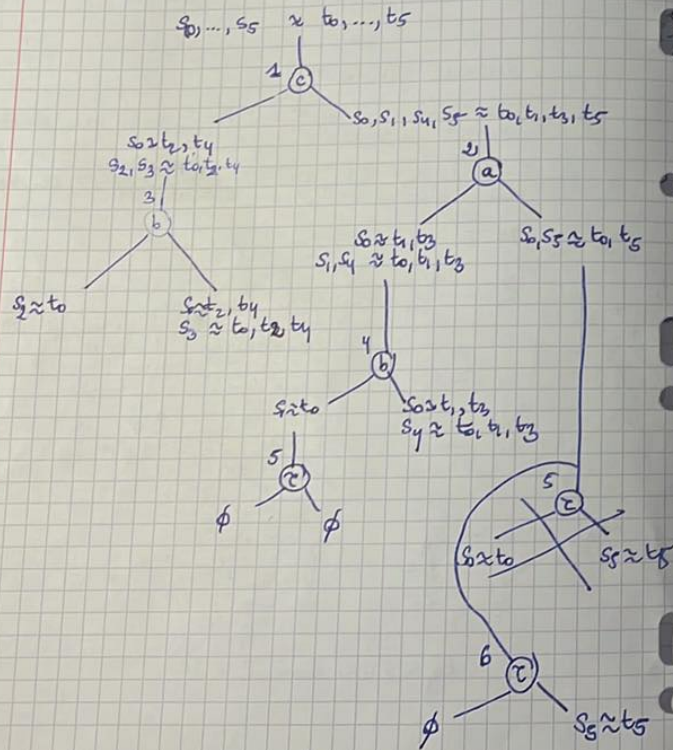 s₀,...,s₅ ≈ t₀,...,t₅
1
c
s₀,s₁,s₄,s₅ ≈ t₀,t₁,t₃,t₅
s₀≈t₂,t₄
s₂,s₃ ≈ t₀,t₂,t₄
2
a
3
b
s₀≈t₁,t₃
s₁,s₄ ≈ t₀,t₁,t₃
s₀,s₅≈t₀,t₅
s₂≈t₀
s₀≈t₂,t₄
s₃ ≈ t₀,t₂,t₄
4
b
s₁≈t₀
s₀≈t₁,t₃
s₄ ≈ t₀,t₁,t₃
5
τ
ϕ
ϕ
5
τ
s₀≈t₀
s₅≈t₅
6
τ
ϕ
s₅≈t₅